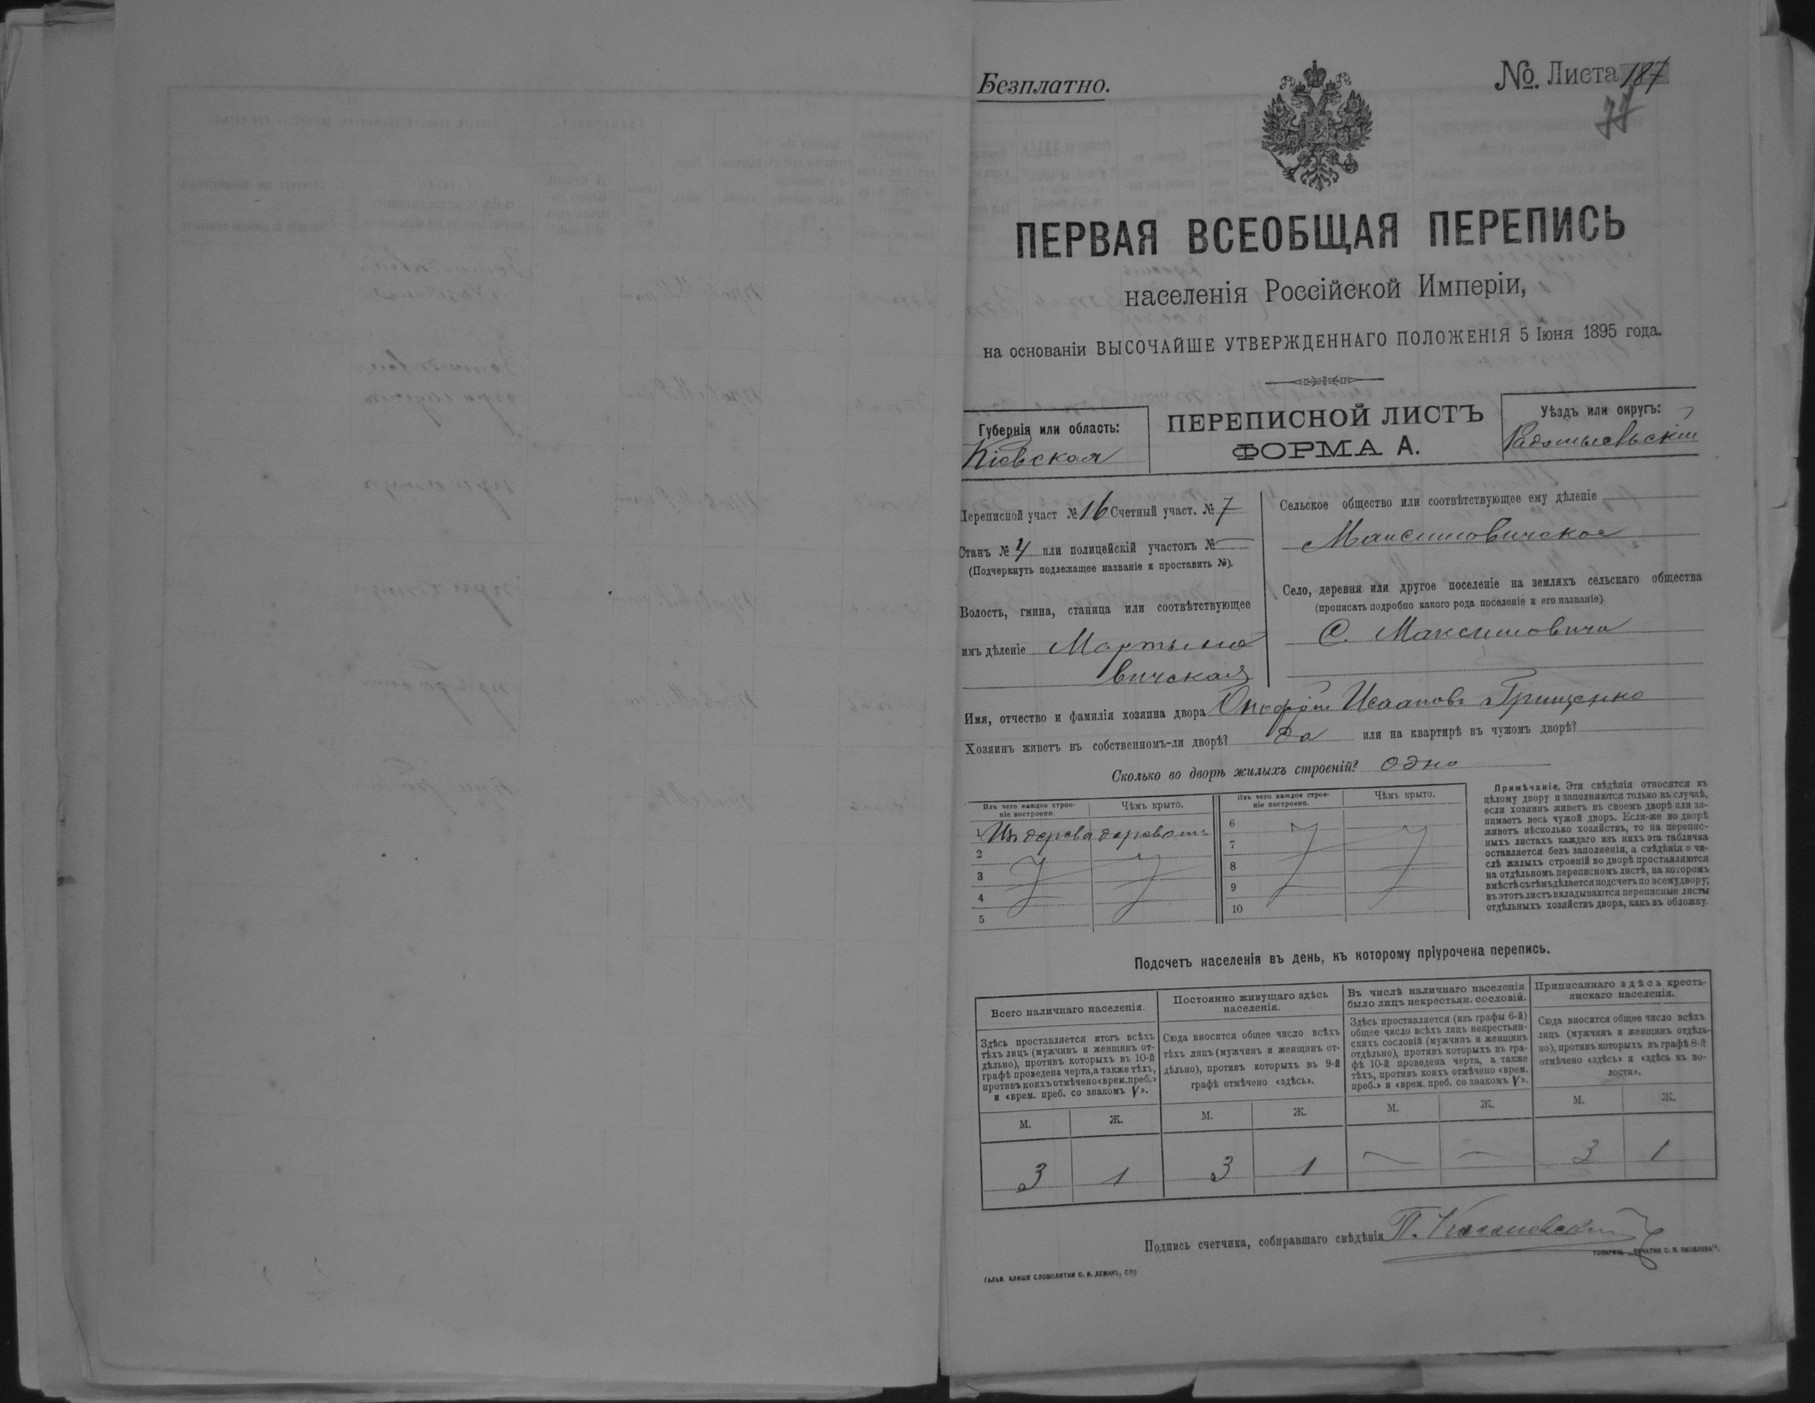 Безплатно.
№. Листа 187
77
ПЕРВАЯ ВСЕОБЩАЯ ПЕРЕПИСЬ
населенія Россійской Имперіи,
на основаніи ВЫСОЧАЙШЕ УТВЕРЖДЕННАГО ПОЛОЖЕНІЯ 5 Іюня 1895 года.
Губернія или область:
Кіевская
ПЕРЕПИСНОЙ ЛИСТЪ
ФОРМА А.
Уѣздъ или округъ:
Радомысльскій
Переписной участ № 16 Счетный участ. № 7
Станъ № 4 или полицейскій участокъ №
(Подчеркнуть подлежащее названіе и проставить №).
Волость, гмина, станица или соотвѣтствующее
имъ дѣленіе Мартыно
вичская
Сельское общество или соотвѣтствующее ему дѣленіе
Максимовичское
Село, деревня или другое поселеніе на земляхъ сельскаго общества
(прописать подробно какого рода поселеніе и его названіе).
С. Максимовичи
Имя, отчество и фамилія хозяина двора Онофрій Исааковъ Грищенко
Хозяинъ живетъ въ собственномъ-ли дворѣ? да или на квартирѣ въ чужомъ дворѣ?
Сколько во дворѣ жилыхъ строеній? одно
Изъ чего каждое строе-
ніе построено.
Чѣмъ крыто.
Изъ чего каждое строе-
ніе построено.
Чѣмъ крыто.
1 Изъ дерева деревомъ
2
3
4
5
6
7
8
9
10
Примѣчаніе. Эти свѣдѣнія относятся къ
цѣлому двору и заполняются только въ случаѣ,
если хозяинъ живетъ въ своемъ дворѣ или за-
нимаетъ весь чужой дворъ. Если-же во дворѣ
живетъ нѣсколько хозяйствъ, то на перепис-
ныхъ листахъ каждаго изъ нихъ эта табличка
оставляется безъ заполненія, а свѣдѣнія о чи-
слѣ жилыхъ строеній во дворѣ проставляются
на отдѣльномъ переписномъ листѣ, на которомъ
вмѣстѣ съ тѣмъ дѣлается подсчетъ по всему двору;
въ этотъ листъ вкладываются переписные листы
отдѣльныхъ хозяйствъ двора, какъ въ обложку.
Подсчетъ населенія въ день, къ которому пріурочена перепись.
Всего наличнаго населенія.
Здѣсь проставляется итогъ всѣхъ
тѣхъ лицъ (мужчинъ и женщинъ от-
дѣльно), противъ которыхъ въ 10-й
графѣ проведена черта, а также тѣхъ,
противъ коихъ отмѣчено «врем. преб.»
и «врем. преб. со знакомъ V».
Постоянно живущаго здѣсь
населенія.
Сюда вносится общее число всѣхъ
тѣхъ лицъ (мужчинъ и женщинъ от-
дѣльно), противъ которыхъ въ 9-й
графѣ отмѣчено «здѣсь».
Въ числѣ наличнаго населенія
было лицъ некрестьян. сословій.
Здѣсь проставляется (изъ графы 6-й)
общее число всѣхъ лицъ некрестьян-
скихъ сословій (мужчинъ и женщинъ
отдѣльно), противъ которыхъ въ гра-
фѣ 10-й проведена черта, а также
тѣхъ, противъ коихъ отмѣчено «врем.
преб.» и «врем. преб. со знакомъ V».
Приписаннаго здѣсь кресть-
янскаго населенія.
Сюда вносится общее число всѣхъ
лицъ (мужчинъ и женщинъ отдѣль-
но), противъ которыхъ въ графѣ 8-й
отмѣчено «здѣсь» и «здѣсь въ во-
лости».
М. Ж. М. Ж. М. Ж. М. Ж.
3 1 3 1 — — 3 1
Подпись счетчика, собиравшаго свѣдѣнія П.
ГАЛЬВ. КЛИШЕ СЛОВОЛИТНИ О. И. ЛЕМАНЪ, СПБ
ТОВАРИЩ. „ПЕЧАТНЯ С. П. ЯКОВЛЕВА".